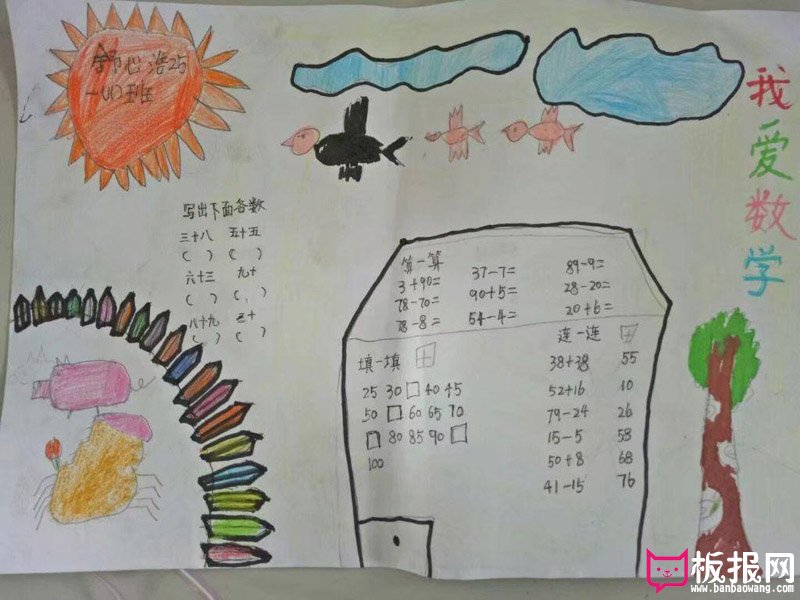 舒心浩25
一(4)班
我爱数学
写出下面各数
三十八 五十五
( ) ( )
六十三 九十
( ) ( )
八十九 三十
( ) ( )
算一算
3+90= 37-7= 89-9=
78-70= 90+5= 28-20=
78-8= 54-4= 20+6=
填一填
25 30 □ 40 45
50 □ 60 65 70
□ 80 85 90 □
100
连一连
38+38 55
52+16 10
79-24 26
15-5 58
50+8 68
41-15 76
板报网
www.banbaowang.com